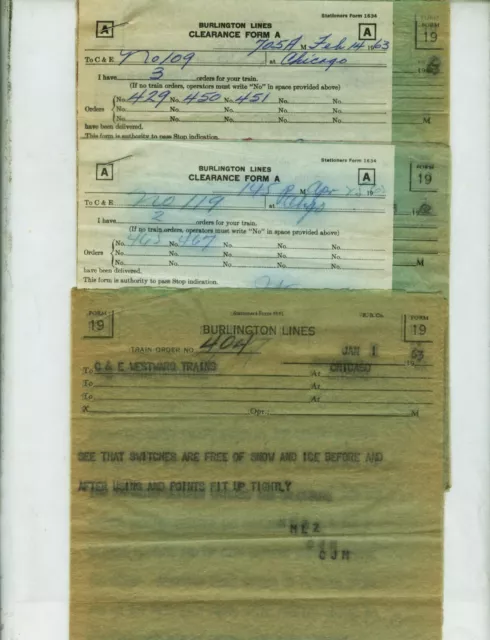 Stationers Form 1634
A BURLINGTON LINES A FORM
CLEARANCE FORM A 19
705A M Feb 14 1963
To C & E No 109 at Chicago
I have 3 orders for your train.
(If no train orders, operators must write "No" in space provided above)
No. 429 No. 450 No. 451 No. No.
Orders No. No. No. No. No.
No. No. No. No. No. M
have been delivered.
This form is authority to pass Stop indication.
Stationers Form 1634
A BURLINGTON LINES A FORM
CLEARANCE FORM A 19
145 P M Apr 19
To C & E No 119 at
I have 2 orders for your train.
(If no train orders, operators must write "No" in space provided above)
No. 463 No. 467 No. No. No.
Orders No. No. No. No. No.
No. No. No. No. No. M
have been delivered.
This form is authority to pass Stop indication.
FORM FORM
19 BURLINGTON LINES 19
TRAIN ORDER NO. 404 JAN 1 1963
To C & E WESTWARD TRAINS At CHICAGO
To At
To At
X Opr. M
SEE THAT SWITCHES ARE FREE OF SNOW AND ICE BEFORE AND
AFTER USING AND POINTS FIT UP TIGHTLY
CJM